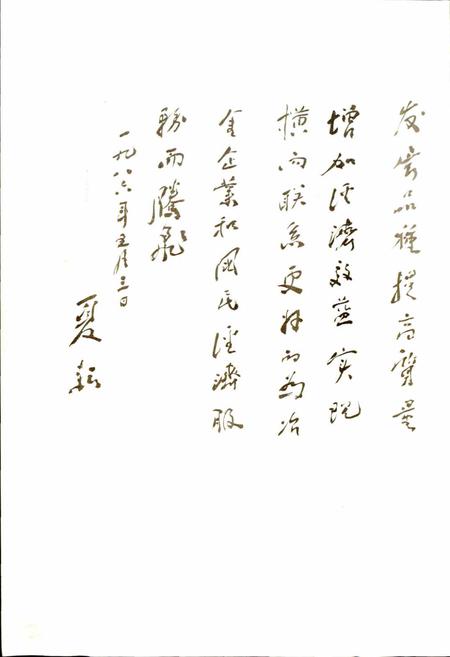 发展品种提高质量
增加经济效益实现
横向联系更好的为冶
金企業和国民經濟服
務而腾飛
一九八六年五月三日
夏耘